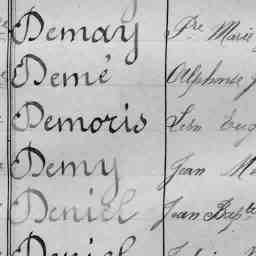 Demay Pre Marie
Demé Alphonse
Demoris Léon Eug
Demy Jean Ma
Deniel Jean Bapte
Deniel